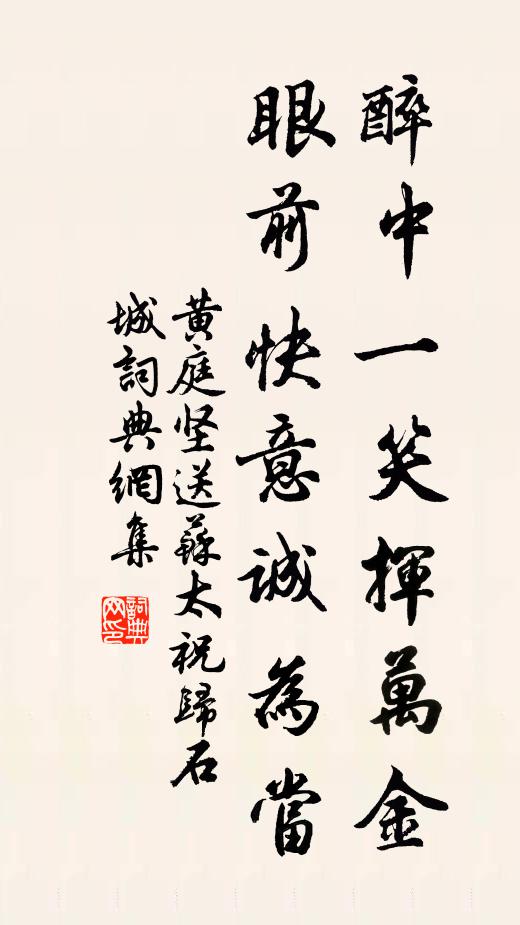 醉中一笑揮萬金
眼前快意誠為當
黄庭坚送蘇太祝歸石
城詞典網集
詞典
网印